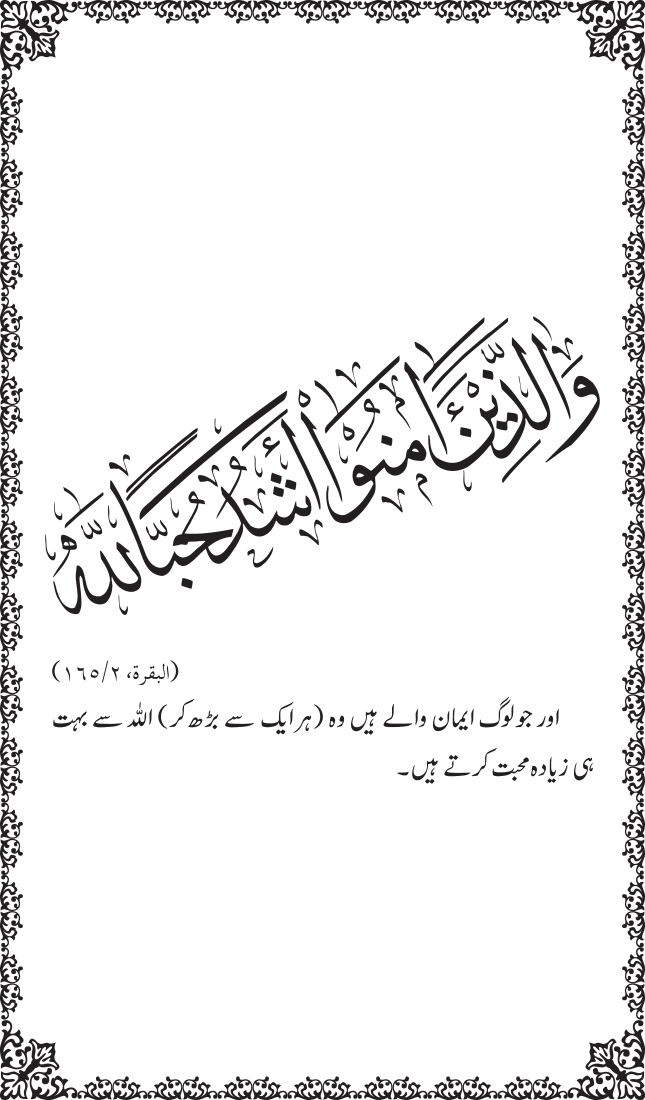 وَالَّذِيْنَ اٰمَنُوْٓا اَشَدُّ حُبًّا لِّلّٰهِ
(البقرة، ٢/١٦٥)
اور جو لوگ ایمان والے ہیں وہ (ہر ایک سے بڑھ کر) اللہ سے بہت
ہی زیادہ محبت کرتے ہیں۔